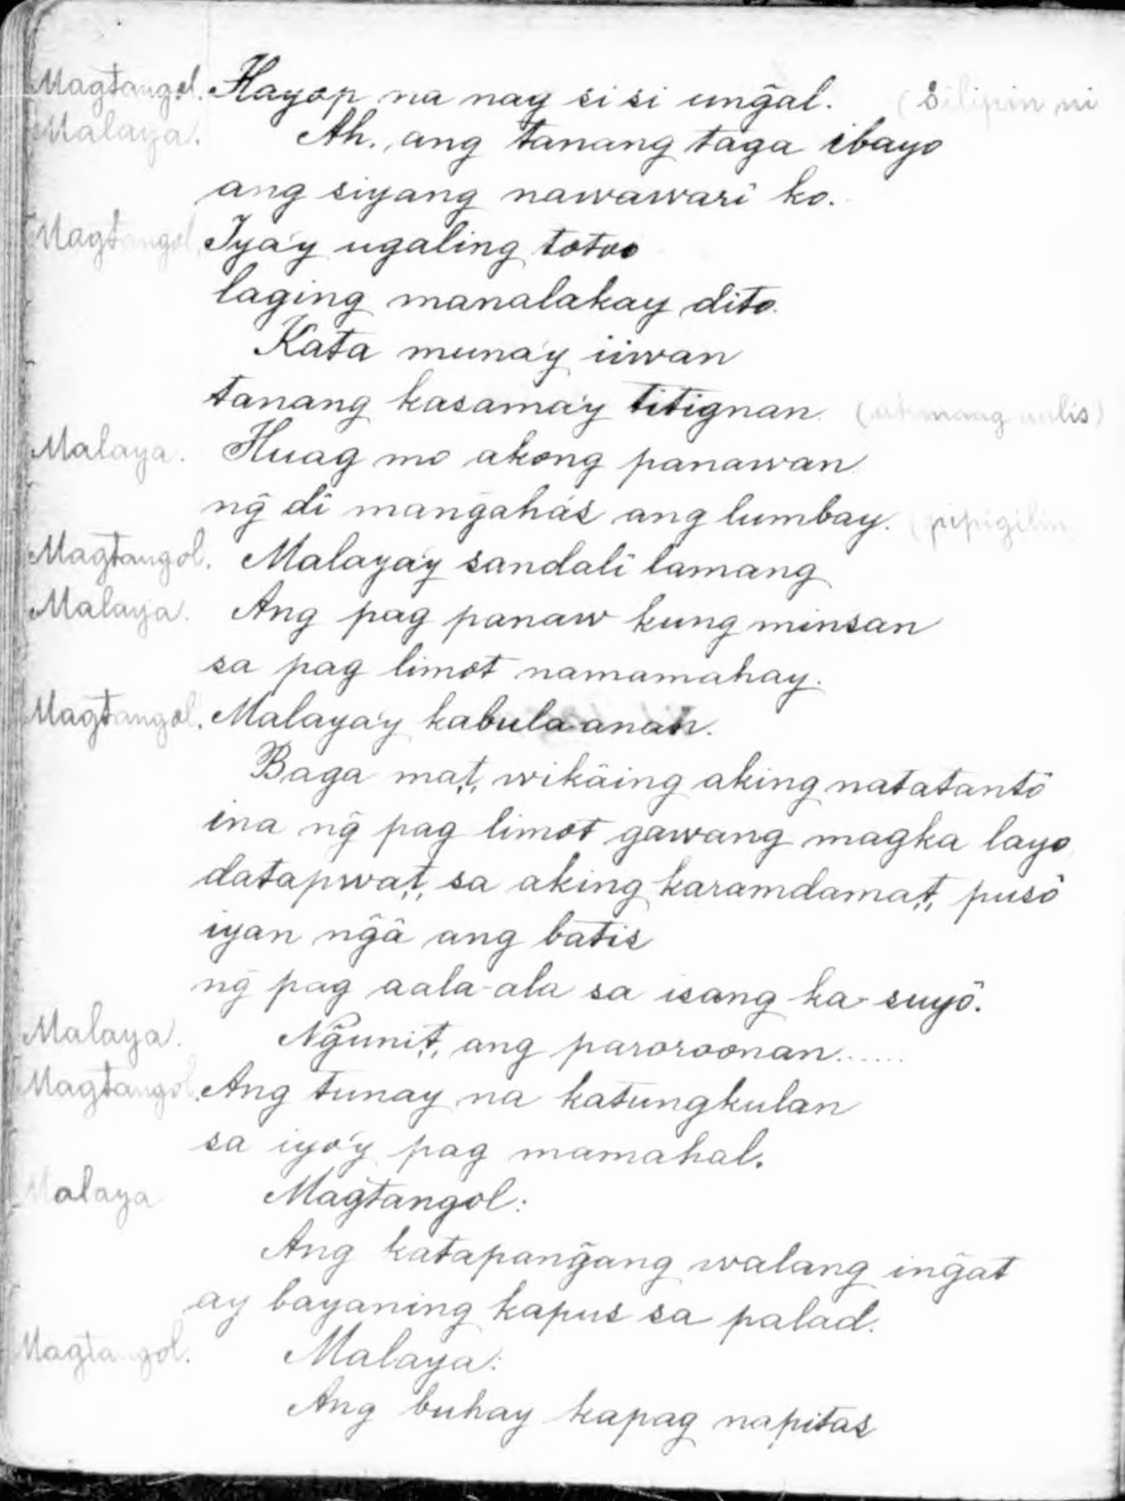 Magtangol. Hayop na nag si si ung̃al. (Silipin ni
Malaya. Ah., ang tanang taga ibayo
ang siyang nawawari ko.
Magtangol. Iya'y ugaling totoo
laging manalakay dito.
Kata muna'y iiwan
tanang kasama'y titignan. (akmang aalis)
Malaya. Huag mo akong panawan
ng̃ di mang̃ahás ang lumbay. (pipigilin
Magtangol. Malaya'y sandalî lamang
Malaya. Ang pag panaw kung minsan
sa pag limot namamahay.
Magtangol. Malaya'y kabula-anan.
Baga ma,t, wikâing aking natatantô
ina ng̃ pag limot gawang magka layo
datapwa,t, sa aking karamdama,t, pusô
iyan ng̃â ang batis
ng̃ pag aala-ala sa isang ka-suyô.
Malaya. Ng̃uni,t, ang paroroonan......
Magtangol. Ang tunay na katungkulan
sa iyo'y pag mamahal.
Malaya Magtangol:
Ang katapang̃ang walang ing̃at
ay bayaning kapus sa palad.
Magtangol. Malaya:
Ang buhay kapag napitas